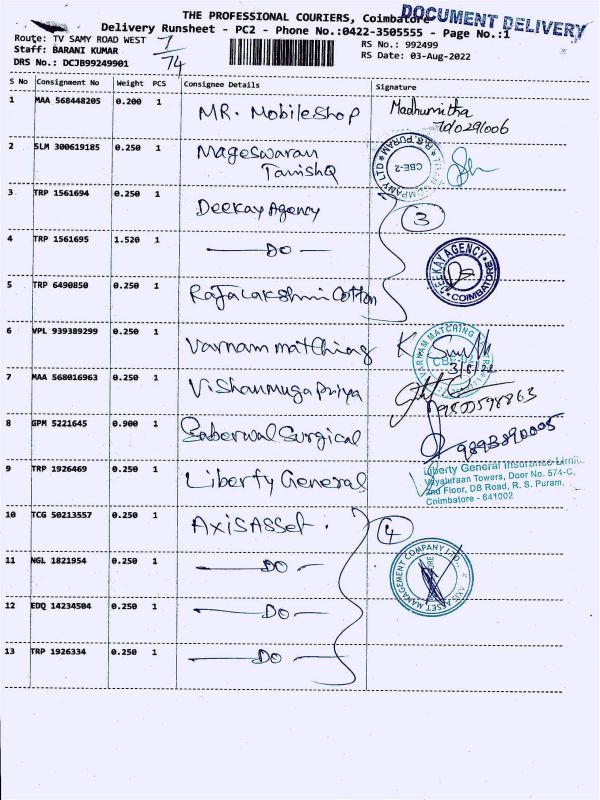 THE PROFESSIONAL COURIERS, Coimbatore
DOCUMENT DELIVERY
Delivery Runsheet - PC2 - Phone No.:0422-3505555 - Page No.:1
Route: TV SAMY ROAD WEST
7/74
RS No.: 992499
Staff: BARANI KUMAR
RS Date: 03-Aug-2022
DRS No.: DCJB99249901
S No Consignment No Weight PCS Consignee Details Signature
1 MAA 568448205 0.200 1 MR. Mobileshop Madhumitha
7010291006
2 SLM 300619185 0.250 1 Mageswaran
Tanishq
R.S PURAM CBE-2
3 TRP 1561694 0.250 1 Deekay Agency 3
4 TRP 1561695 1.520 1 DO
DEEKAY AGENCY COIMBATORE
5 TRP 6490850 0.250 1 Rajalakshmi Cotton
6 VPL 939389299 0.250 1 Varnam matching
VARNAM MATCHING CBE
3/8/22
7 MAA 568016963 0.250 1 Vishanmuga Priya
8 GPM 5221645 0.900 1 Saberwal Surgical
9 TRP 1926469 0.250 1 Liberty General
Liberty General Insurance Limi
Vayalufaan Towers, Door No. 574-C,
2nd Floor, DB Road, R. S. Puram,
Coimbatore - 641002
10 TCG 50213557 0.250 1 Axis Asset. 4
11 NGL 1821954 0.250 1 DO
AXIS ASSET MANAGEMENT COMPANY LTD.
12 EDQ 14234504 0.250 1 DO
13 TRP 1926334 0.250 1 DO